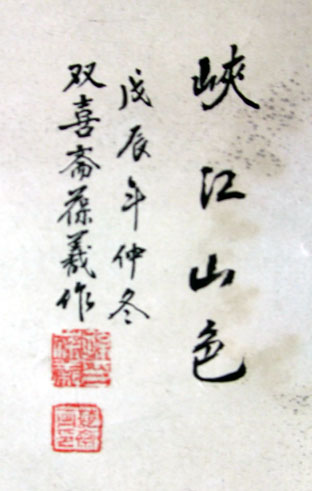 峽江山色
戊辰年仲冬
双喜斋葆羲作